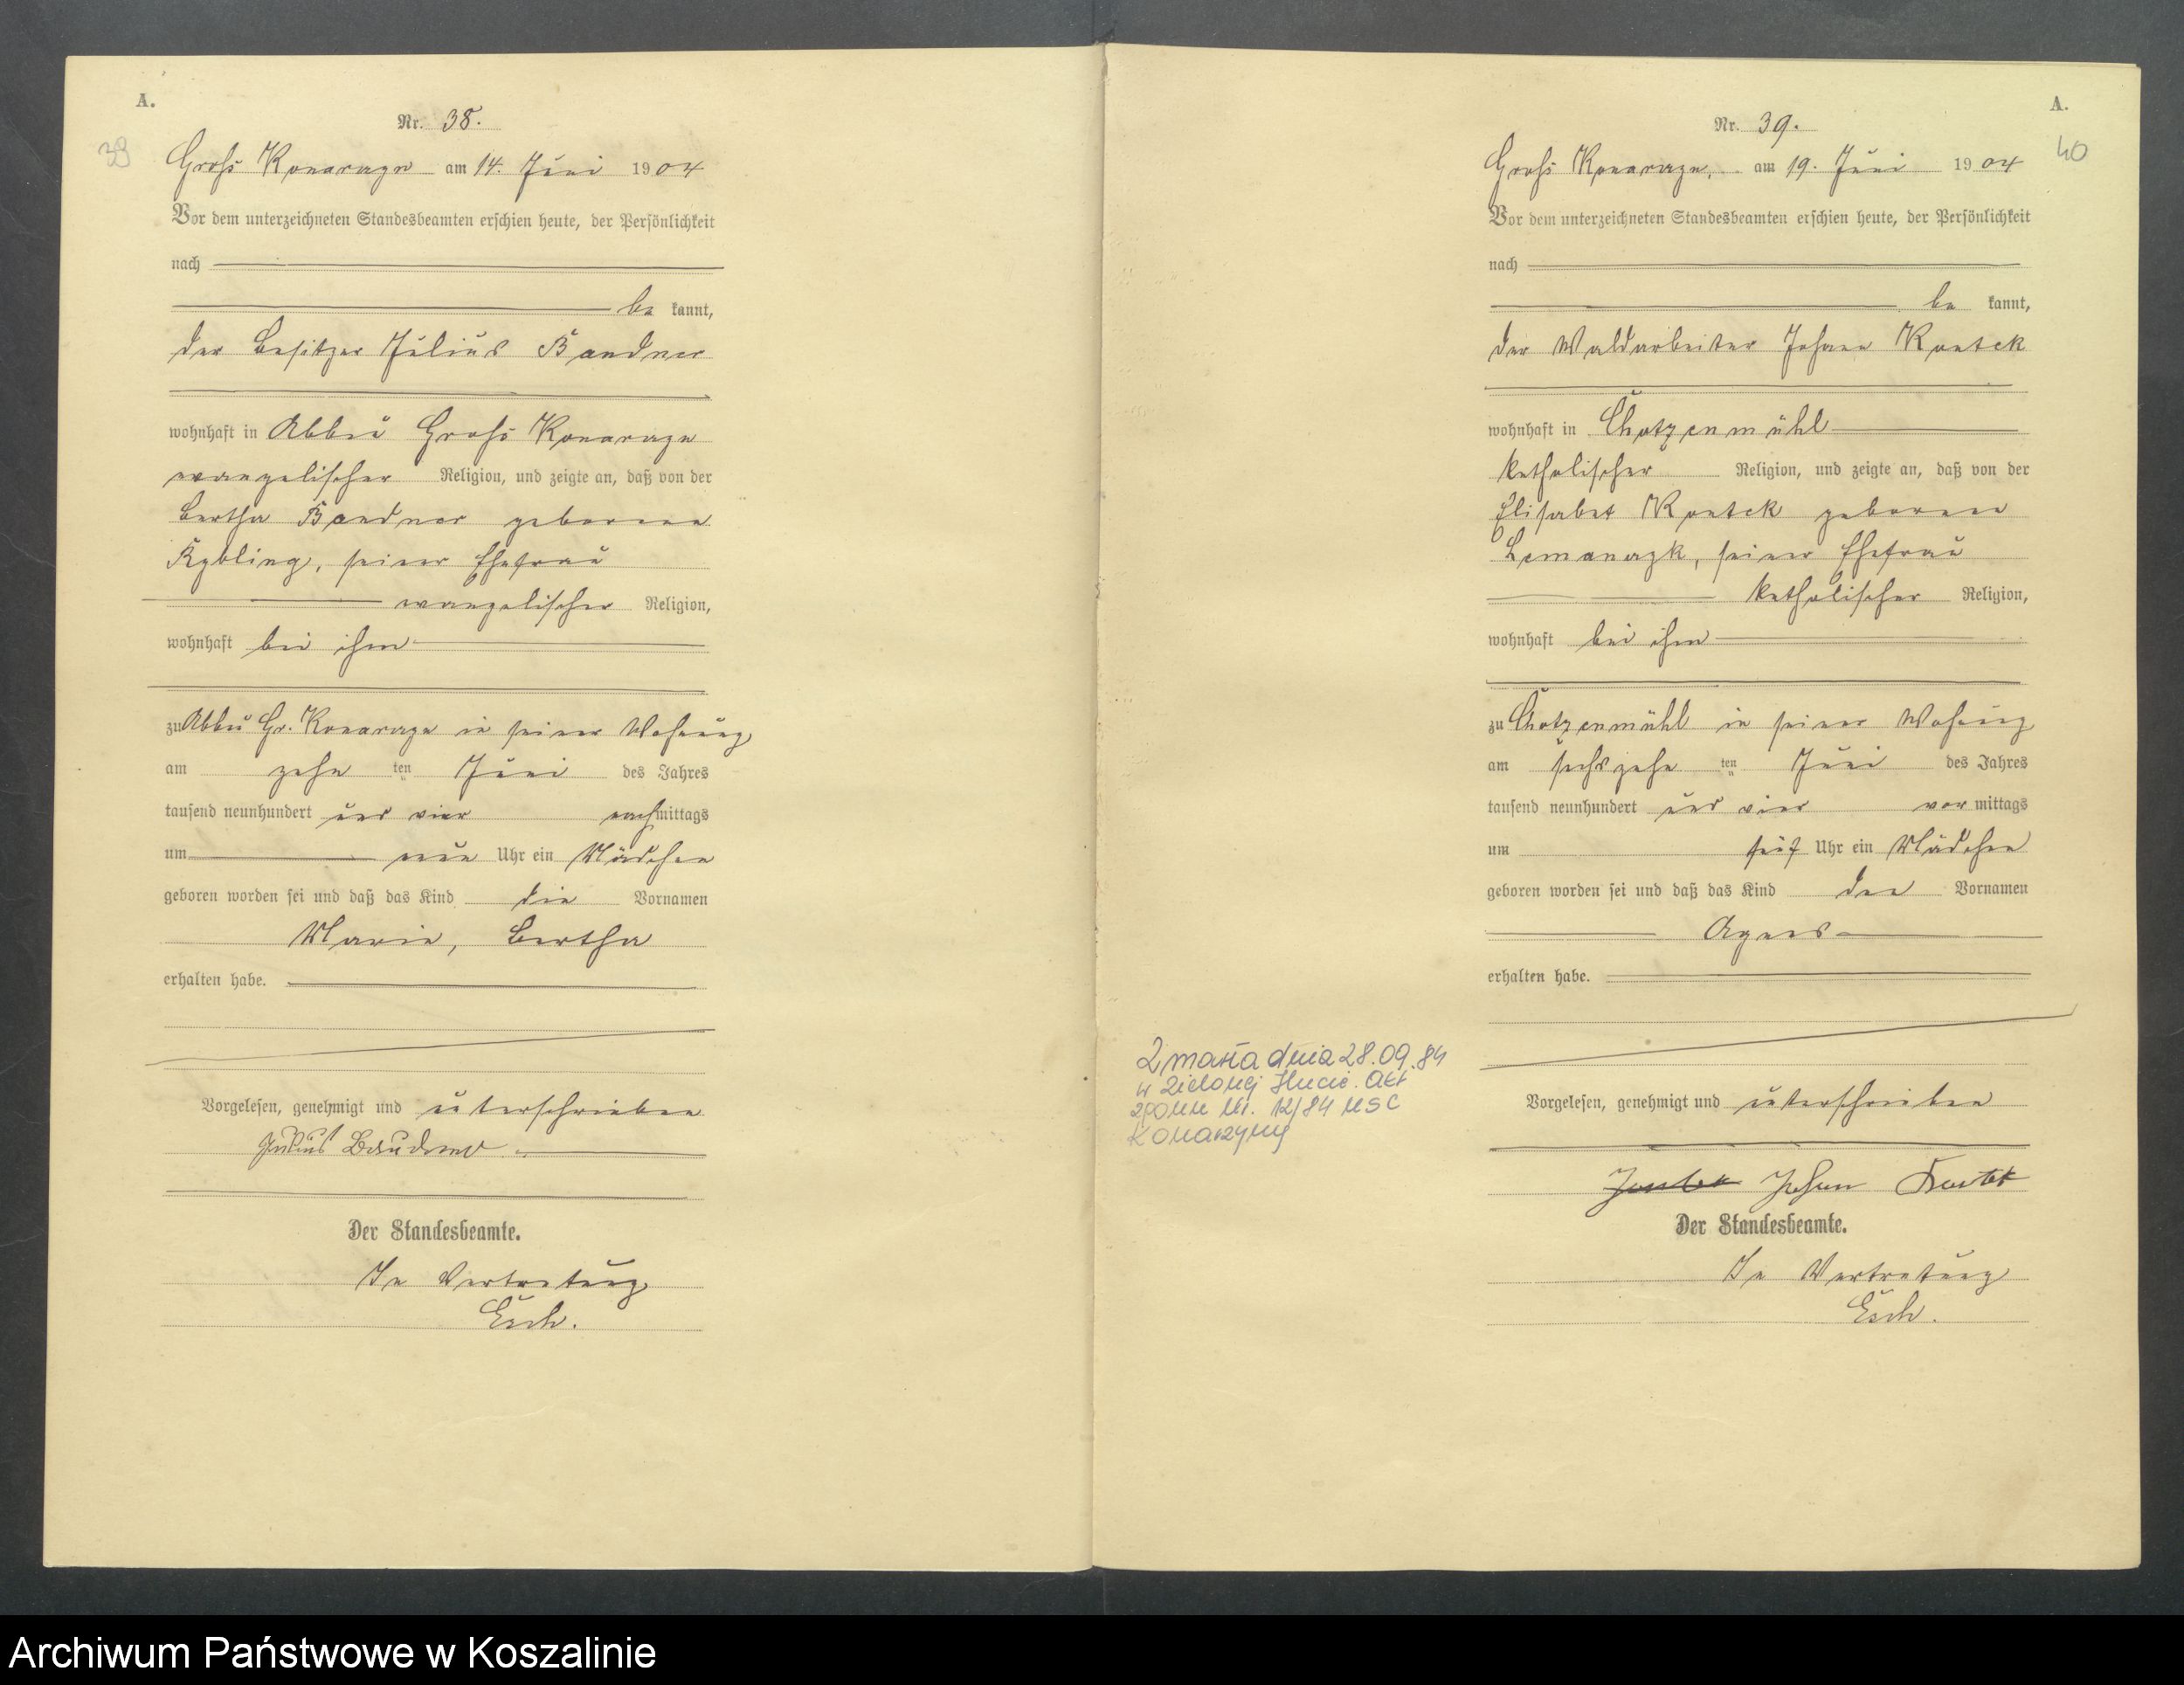 A.
39
Nr. 38.
Groß Konarczyn am 14. Juni 1904
Vor dem unterzeichneten Standesbeamten erschien heute, der Persönlichkeit
nach
be kannt,
der Besitzer Julius
wohnhaft in Abbau Groß Konarczyn
evangelischer Religion, und zeigte an, daß von der
Bertha geborene
seiner Ehefrau
evangelischer Religion,
wohnhaft bei ihm
zu Abbau Gr. Konarczyn in seiner Wohnung
am zehn ten Juni des Jahres
tausend neunhundert und vier nachmittags
um neun Uhr ein Mädchen
geboren worden sei und daß das Kind die Vornamen
Marie, Bertha
erhalten habe.
Vorgelesen, genehmigt und unterschrieben
Julius
Der Standesbeamte.
In Vertretung
Esch.
A.
40
Nr. 39.
Groß Konarczyn, am 19. Juni 1904
Vor dem unterzeichneten Standesbeamten erschien heute, der Persönlichkeit
nach
be kannt,
der Waldarbeiter Johann Kontek
wohnhaft in Chotzenmühl
katholischer Religion, und zeigte an, daß von der
Elisabet Kontek geborene
seiner Ehefrau
katholischer Religion,
wohnhaft bei ihm
zu Chotzenmühl in seiner Wohnung
am sechszehn ten Juni des Jahres
tausend neunhundert und vier vor mittags
um fünf Uhr ein Mädchen
geboren worden sei und daß das Kind den Vornamen
Agnes
erhalten habe.
Zmarła dnia 28.09.84
w Zielonej Hucie. Akt
zgonu Nr. 12/84 USC
Konarzyny
Vorgelesen, genehmigt und unterschrieben
Johann Kontek
Der Standesbeamte.
In Vertretung
Esch.
Archiwum Państwowe w Koszalinie